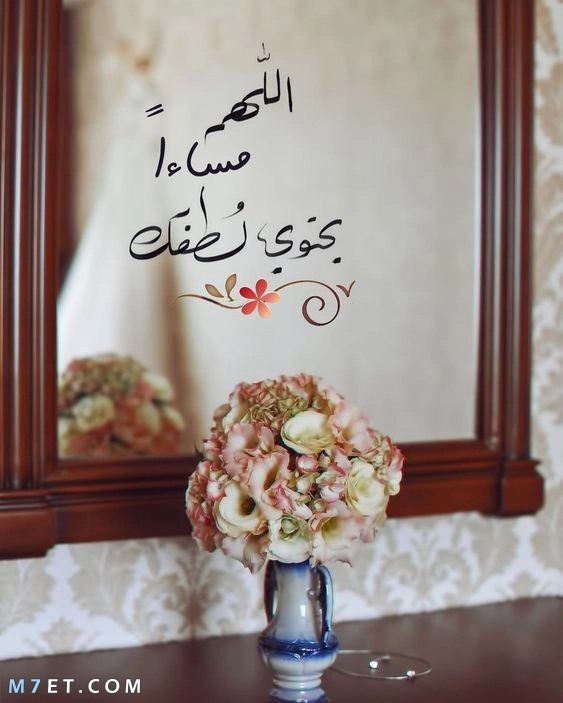 اللّهم
مساءاً
يحتوي لُطفك
M7ET.COM